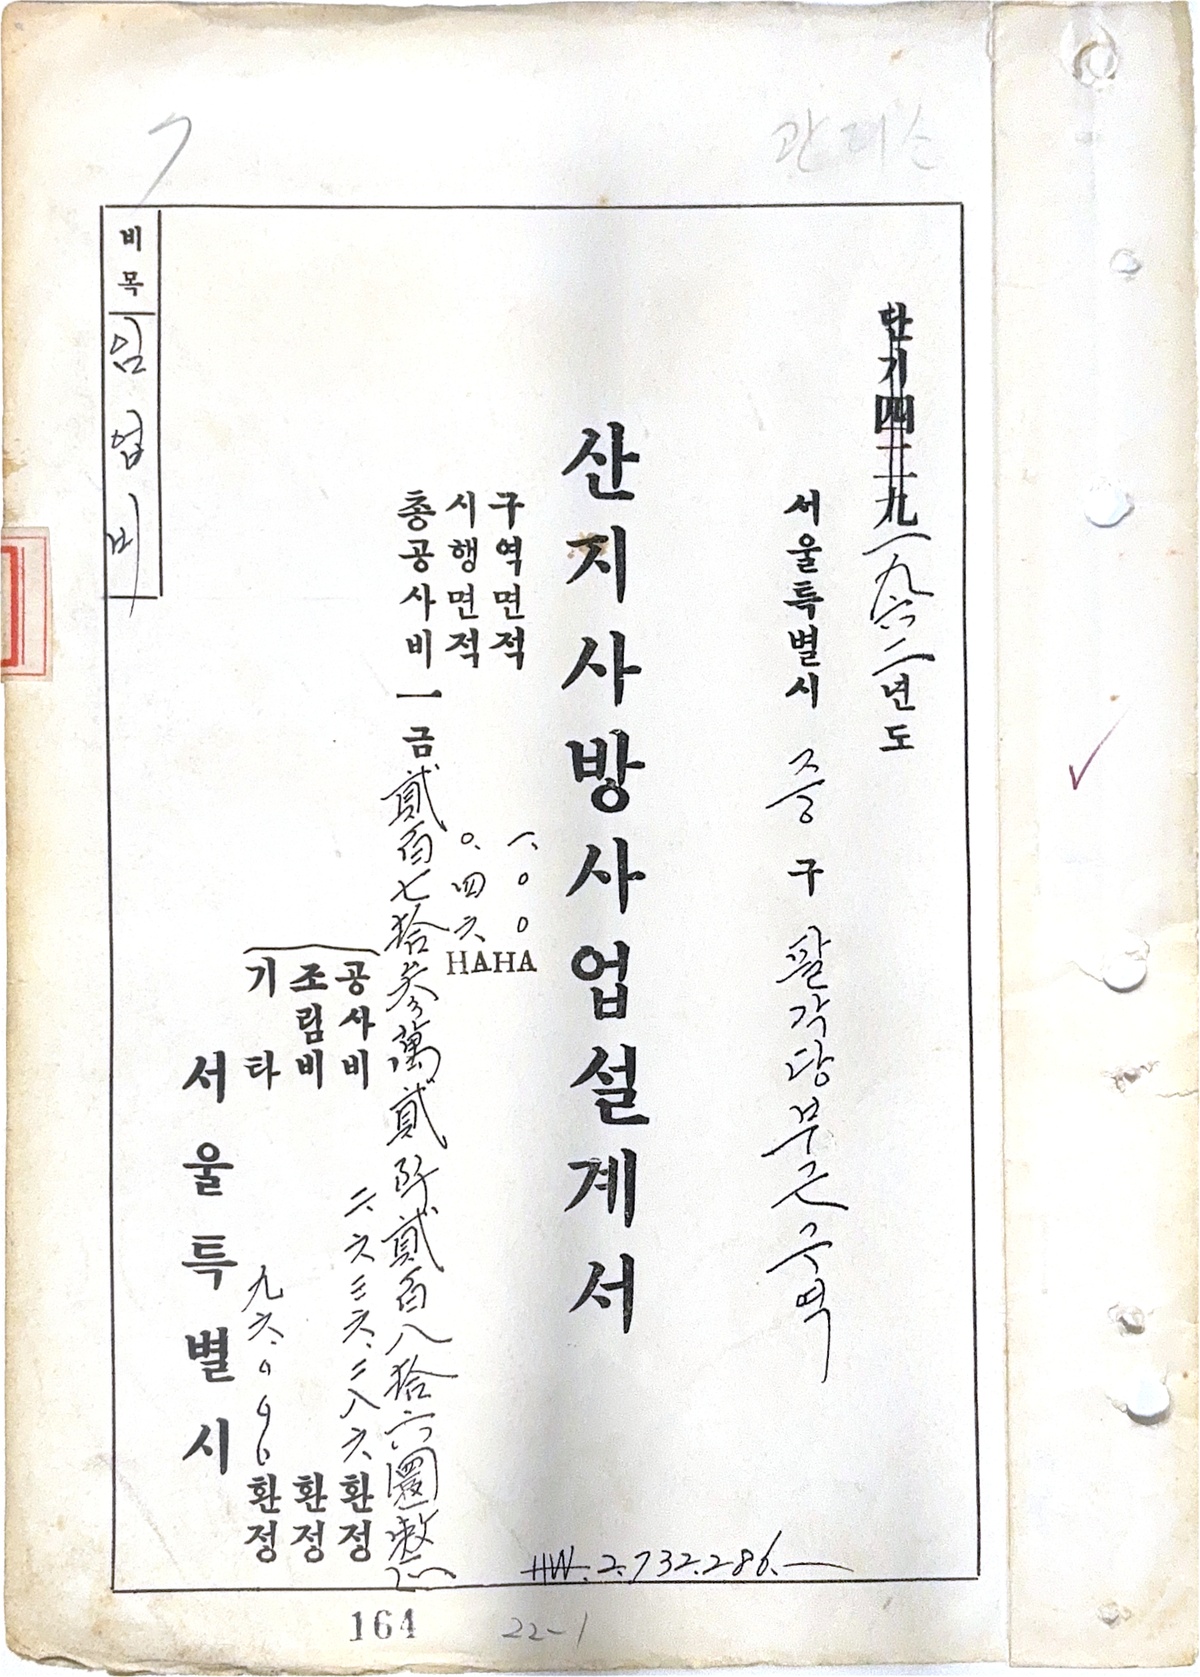 관리손
7
단기四二九一九六二년도
서울특별시 중구 팔각당부근구역
산지사방사업설계서
구역면적 一.００HA
시행면적 ０.四六HA
총공사비 一금貳百七拾參萬貳阡貳百八拾六圜整
공사비 二.六三六.二八六환정
조림비 환정
기타 九六.０００환정
서울특별시
비목 임업비
HW.2.732.286.—
164
22-1